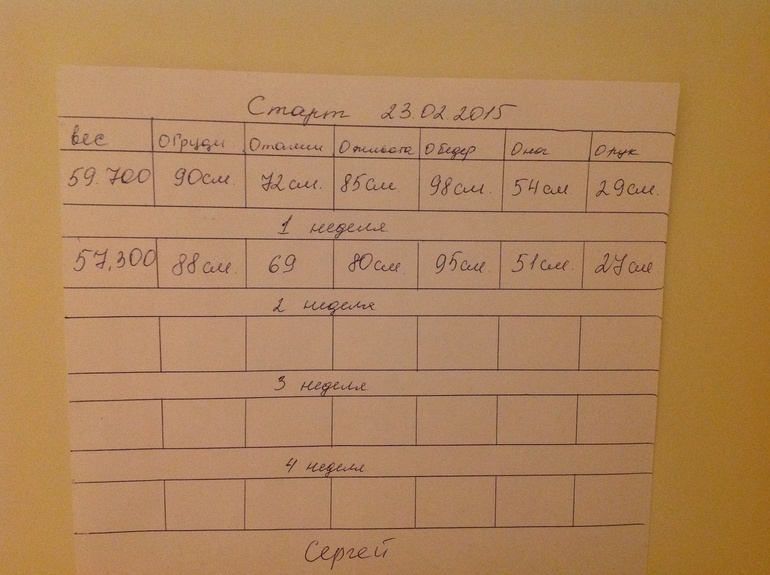 Старт 23.02.2015
вес ОГруди Оталии Оживота Обедер Оног Орук
59.700 90см. 72см. 85см 98см. 54см 29см.
1 неделя
57,300 88см. 69 80см. 95см. 51см. 27см
2 неделя
3 неделя
4 неделя
Сергей